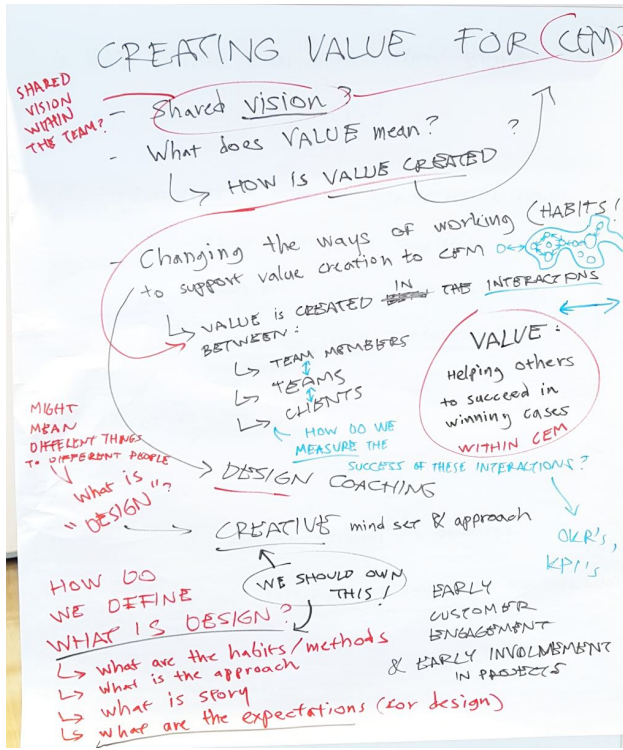 CREATING VALUE FOR CEM
SHARED
VISION
WITHIN
THE TEAM?
- Shared vision?
- What does VALUE mean? ?
↳ HOW IS VALUE CREATED
- Changing the ways of working (HABITS!
to support value creation to CEM
↳ VALUE IS CREATED IN THE INTERACTIONS
BETWEEN:
↳ TEAM MEMBERS
↳ TEAMS
↳ CLIENTS
VALUE:
Helping others
to succeed in
winning cases
WITHIN CEM
HOW DO WE
MEASURE THE
SUCCESS OF THESE INTERACTIONS?
OKR's,
KPI's
MIGHT
MEAN
DIFFERENT THINGS
TO DIFFERENT PEOPLE
What is
"DESIGN"?
DESIGN COACHING
CREATIVE mind set & approach
WE SHOULD OWN
THIS!
HOW DO
WE DEFINE
WHAT IS DESIGN?
↳ what are the habits/methods
↳ what is the approach
↳ what is story
↳ what are the expectations (for design)
EARLY
CUSTOMER
ENGAGEMENT
& EARLY INVOLMEMENT
IN PROJECTS